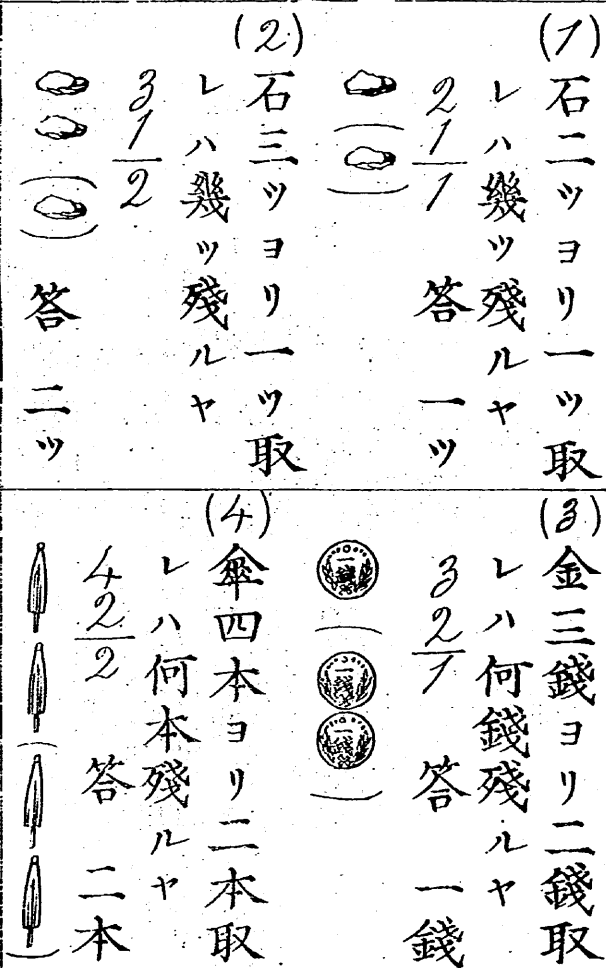 (1)
石二ツヨリ一ツ取
レハ幾ツ殘ルヤ
2
1
1
答 一ツ
(2)
石三ツヨリ一ツ取
レハ幾ツ殘ルヤ
3
1
2
答 二ツ
(3)
金三錢ヨリ二錢取
レハ何錢殘ルヤ
3
2
1
答 一錢
一錢
一錢
一錢
(4)
傘四本ヨリ二本取
レハ何本殘ルヤ
4
2
2
答 二本